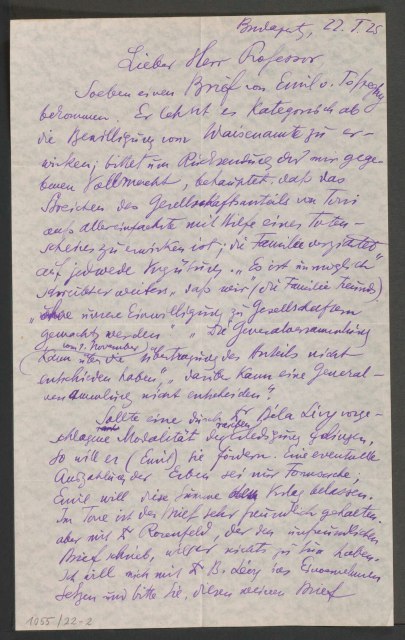 Budapest, 22. I. 25
Lieber Herr Professor
Soeben einen Brief von Emil v.
bekommen. Er lehnt es kategorisch ab
die Bewilligung vom Waisenamte zu er-
wirken; bittet um Rücksendung der mir gege-
benen Vollmacht, behauptet, daß das
Streichen des Gesellschaftsanteils von Toni
aufs allereinfachste mit Hilfe eines Toten-
scheines zu erwirken ist; die Familie verzichtet
auf jedwede Vergütung. „Es ist unmöglich
schreibt er weiter, „daß wir (die Familie Freunds)
„ohne unsere Einwilligung zu Gesellschaftern
gemacht werden" „Die Generalversammlung
(vom 7. November)
kann über die Übertragung des Anteils nicht
entschieden haben", „darüber kann eine General-
versammlung nicht entscheiden".
Sollte eine durch Dr Béla Lévy vorge-
schlagene Modalität der Erledigung gelingen,
so will er (Emil) sie fördern. Eine eventuelle
Auszahlung der Erben sei nur Formsache,
Emil will diese Summe dem Verlag belassen.
Im Tone ist der Brief sehr freundlich gehalten,
aber mit Dr Rosenfeld, der den unfreundlichen
Brief schrieb, will er nichts zu tun haben.
Ich will mich mit Dr B. Lévy ins Einvernehmen
setzen und bitte Sie, diesen meinen Brief
1055/22-2